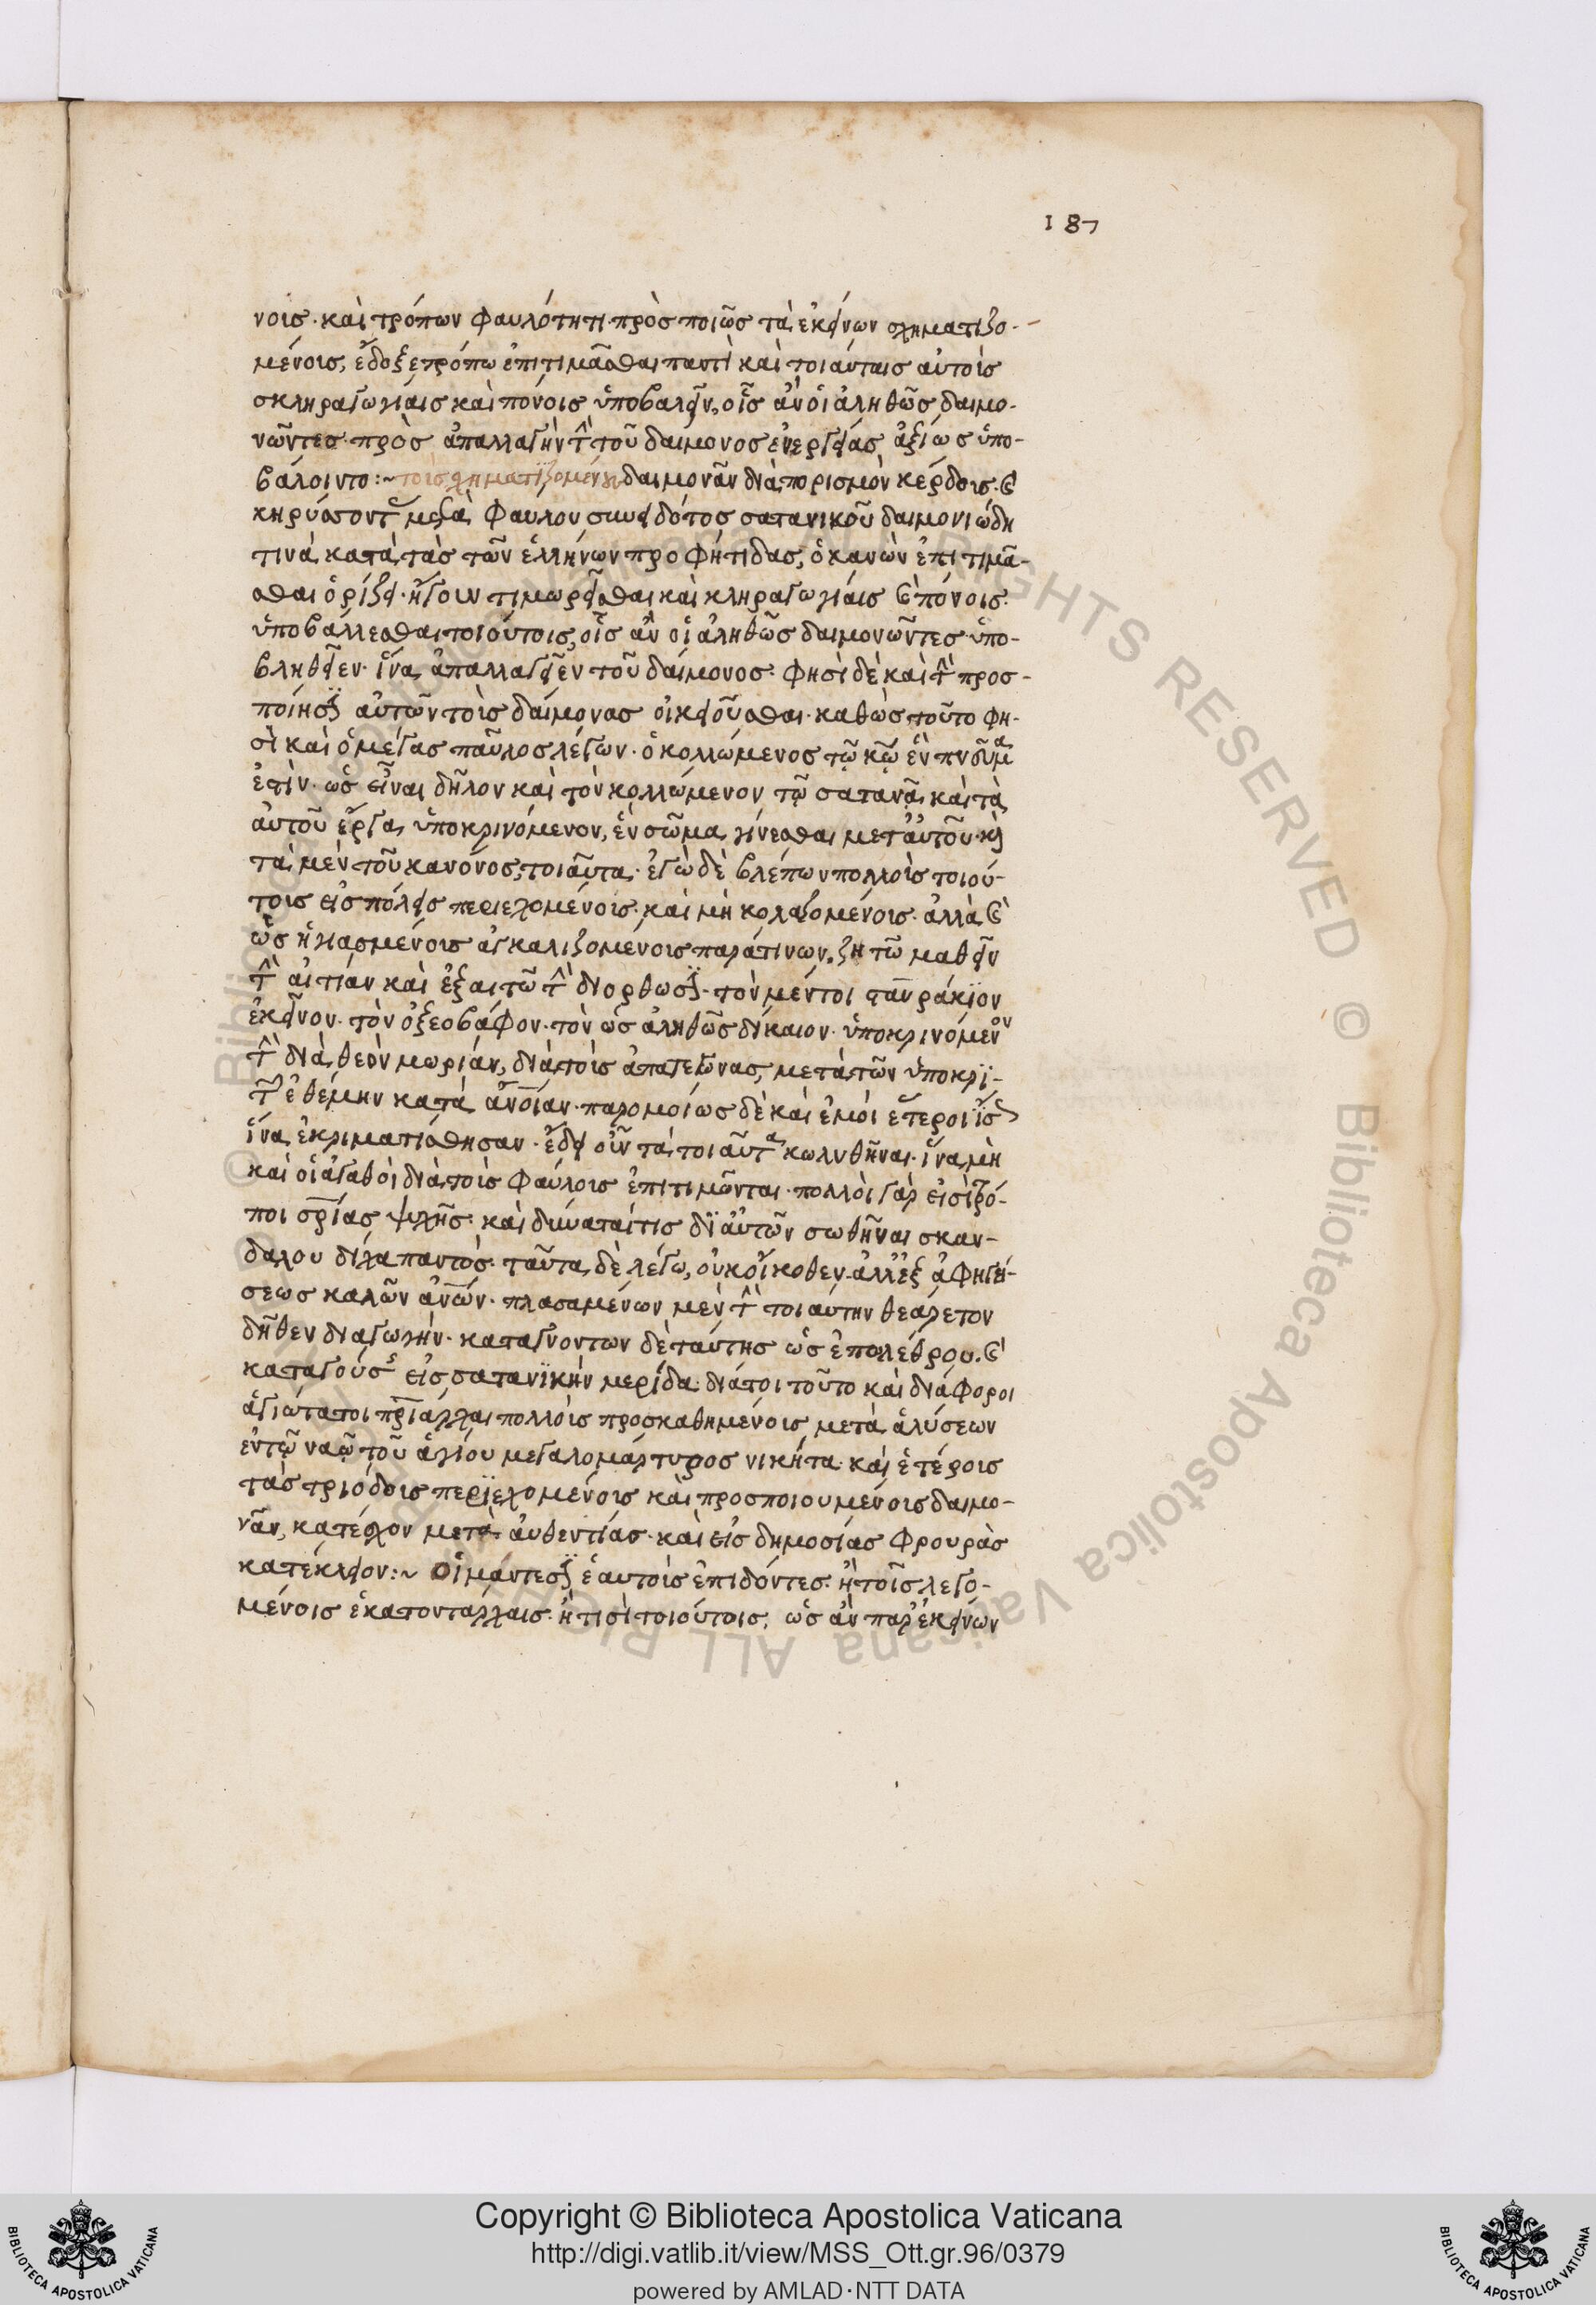 187
νοις· καὶ τρόπων φαυλότητι προσποιῶς τὰ ἐκείνων σχηματιζο-
μένοις, ἔδοξε τρόπω ἐπιτιμᾶσθαι παντὶ καὶ τοιαύταις αὐτοὺς
σκληραγωγίαις καὶ πόνοις ὑποβαλεῖν, οἷς ἂν οἱ ἀληθῶς δαιμο-
νῶντες πρὸς ἀπαλλαγὴν τὴν τοῦ δαίμονος ἐνεργείας ἀξίως ὑπο-
βάλοιντο :~ τοὺς σχηματιζομένους δαιμονᾶν διὰ πορισμὸν κέρδους. καὶ
κηρύσσοντας μετὰ φαύλου συνειδότος σατανικοῦ δαιμονιώδη
τινὰ κατὰ τὰς τῶν ἑλλήνων προφήτιδας, ὁ κανὼν ἐπιτιμᾶ-
σθαι ὁρίζει· ἤγουν τιμωρεῖσθαι καὶ κληραγωγίαις καὶ πόνοις
ὑποβάλλεσθαι τοιούτοις, οἷς ἂν οἱ ἀληθῶς δαιμονῶντες ὑπο-
βληθεῖεν· ἵνα ἀπαλλαγεῖεν τοῦ δαίμονος· φησὶ δὲ καὶ τὴν προσ-
ποίησιν αὐτῶν τοὺς δαίμονας οἰκειοῦσθαι· καθὼς τοῦτο φη-
σὶ καὶ ὁ μέγας παῦλος λέγων· ὁ κολλώμενος τῷ κῷ ἓν πνεῦμα
ἐστίν· ὡς εἶναι δῆλον καὶ τὸν κολλώμενον τῷ σατανᾷ καὶ τὰ
αὐτοῦ ἔργα ὑποκρινόμενον, ἓν σῶμα γίνεσθαι μετ' αὐτοῦ· καὶ
τὰ μὲν τοῦ κανόνος, τοιαῦτα· ἐγὼ δὲ βλέπων πολλοὺς τοιού-
τους εἰς πόλεις περιεχομένους· καὶ μὴ κολαζομένους· ἀλλὰ καὶ
ὡς ἡγιασμένους ἀγκαλιζομένους παρά τινων, ζητῶ μαθεῖν
τὴν αἰτίαν καὶ ἐξαιτῶ τὴν διόρθωσιν· τὸν μέντοι σταυράκιον
ἐκεῖνον· τὸν ὀξεοβάφον· τὸν ὡς ἀληθῶς δίκαιον· ὑποκρινόμενον
τὴν διὰ θεὸν μωρίαν, διὰ τοὺς ἀπατεῶνας, μετὰ τῶν ὑποκρι-
τῶν ἐθέμην κατὰ ἄνοιαν· παρομοίως δὲ καὶ ἐμοὶ ἕτεροι ἴσως
ἵνα ἐκριματίσθησαν· ἔδει οὖν τὰ τοιαῦτα κωλυθῆναι· ἵνα μὴ
καὶ οἱ ἀγαθοὶ διὰ τοὺς φαύλους ἐπιτιμῶνται· πολλοὶ γὰρ εἰσὶ τρό-
ποι σρίας ψυχῆς· καὶ δύναταί τις δι' αὐτῶν σωθῆναι σκαν-
δάλου δίχα παντός· ταῦτα δὲ λέγω, οὐκ οἴκοθεν· ἀλλ' ἐξ ἀφηγή-
σεως καλῶν ἀνῶν· πλασαμένων μὲν τὴν τοιαύτην θεάρεστον
δῆθεν διαγωγήν· καταγνόντων δὲ ταύτης ὡς ἐπολέθρου. καὶ
καταγούσης εἰς σατανικὴν μερίδα· διάτοι τοῦτο καὶ διάφοροι
ἁγιώτατοι πριάρχαι πολλοὺς προσκαθημένους μετὰ ἁλύσεων
ἐν τῷ ναῷ τοῦ ἁγίου μεγαλομάρτυρος νικήτα· καὶ ἑτέρους
τὰς τριόδους περιεχομένους καὶ προσποιουμένους δαιμο-
νᾶν, κατέσχον μετὰ αὐθεντίας· καὶ εἰς δημοσίας φρουρὰς
κατέκλειον :~ Οἱ μάντεσιν ἑαυτοὺς ἐπιδόντες. ἢ τοῖς λεγο-
μένοις ἑκατοντάρχαις. ἤ τισι τοιούτοις, ὡς ἂν παρ' ἐκείνων
Copyright © Biblioteca Apostolica Vaticana
http://digi.vatlib.it/view/MSS_Ott.gr.96/0379
powered by AMLAD·NTT DATA